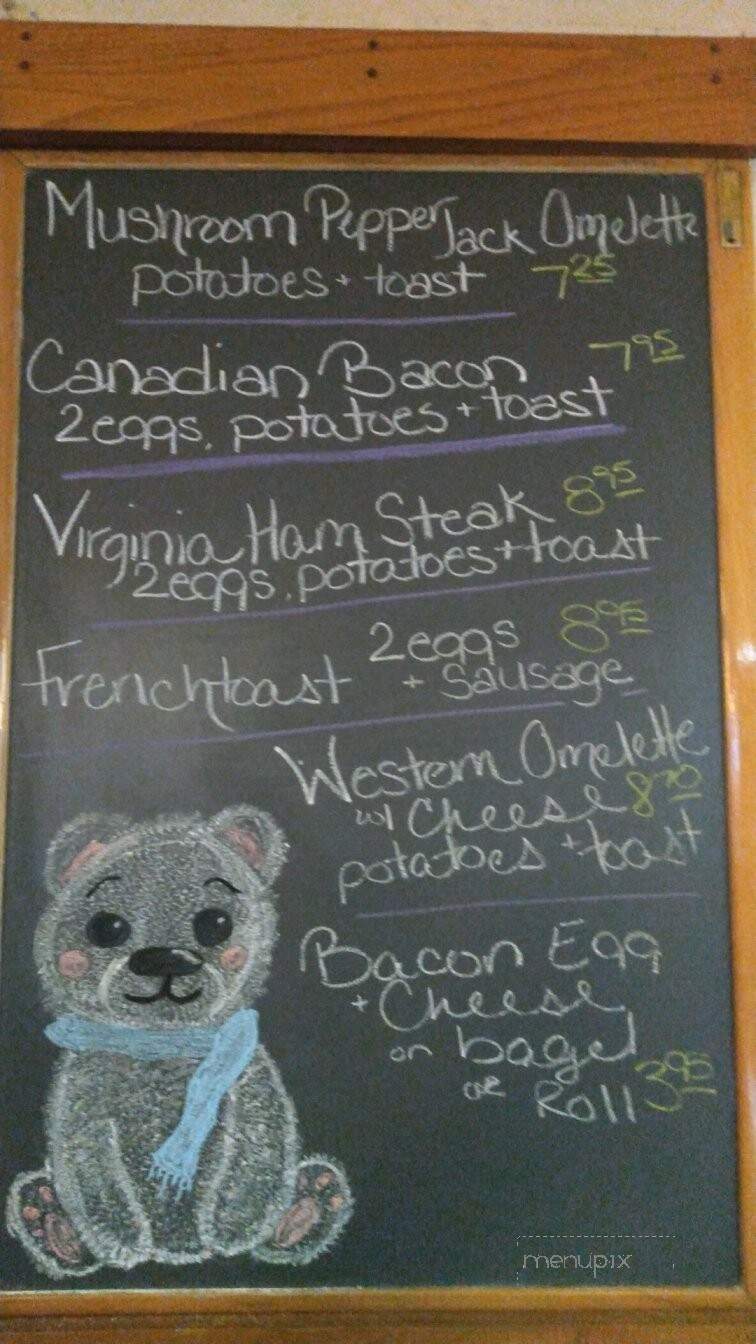 Mushroom Pepper Jack Omelette
potatoes + toast 7 25
Canadian Bacon 7 95
2 eggs, potatoes + toast
Virginia Ham Steak 8 95
2 eggs, potatoes + toast
Frenchtoast 2 eggs 8 95
+ Sausage
Western Omelette
w/ Cheese 8 70
potatoes + toast
Bacon Egg
+ Cheese
on bagel
or Roll 3 95
menupix